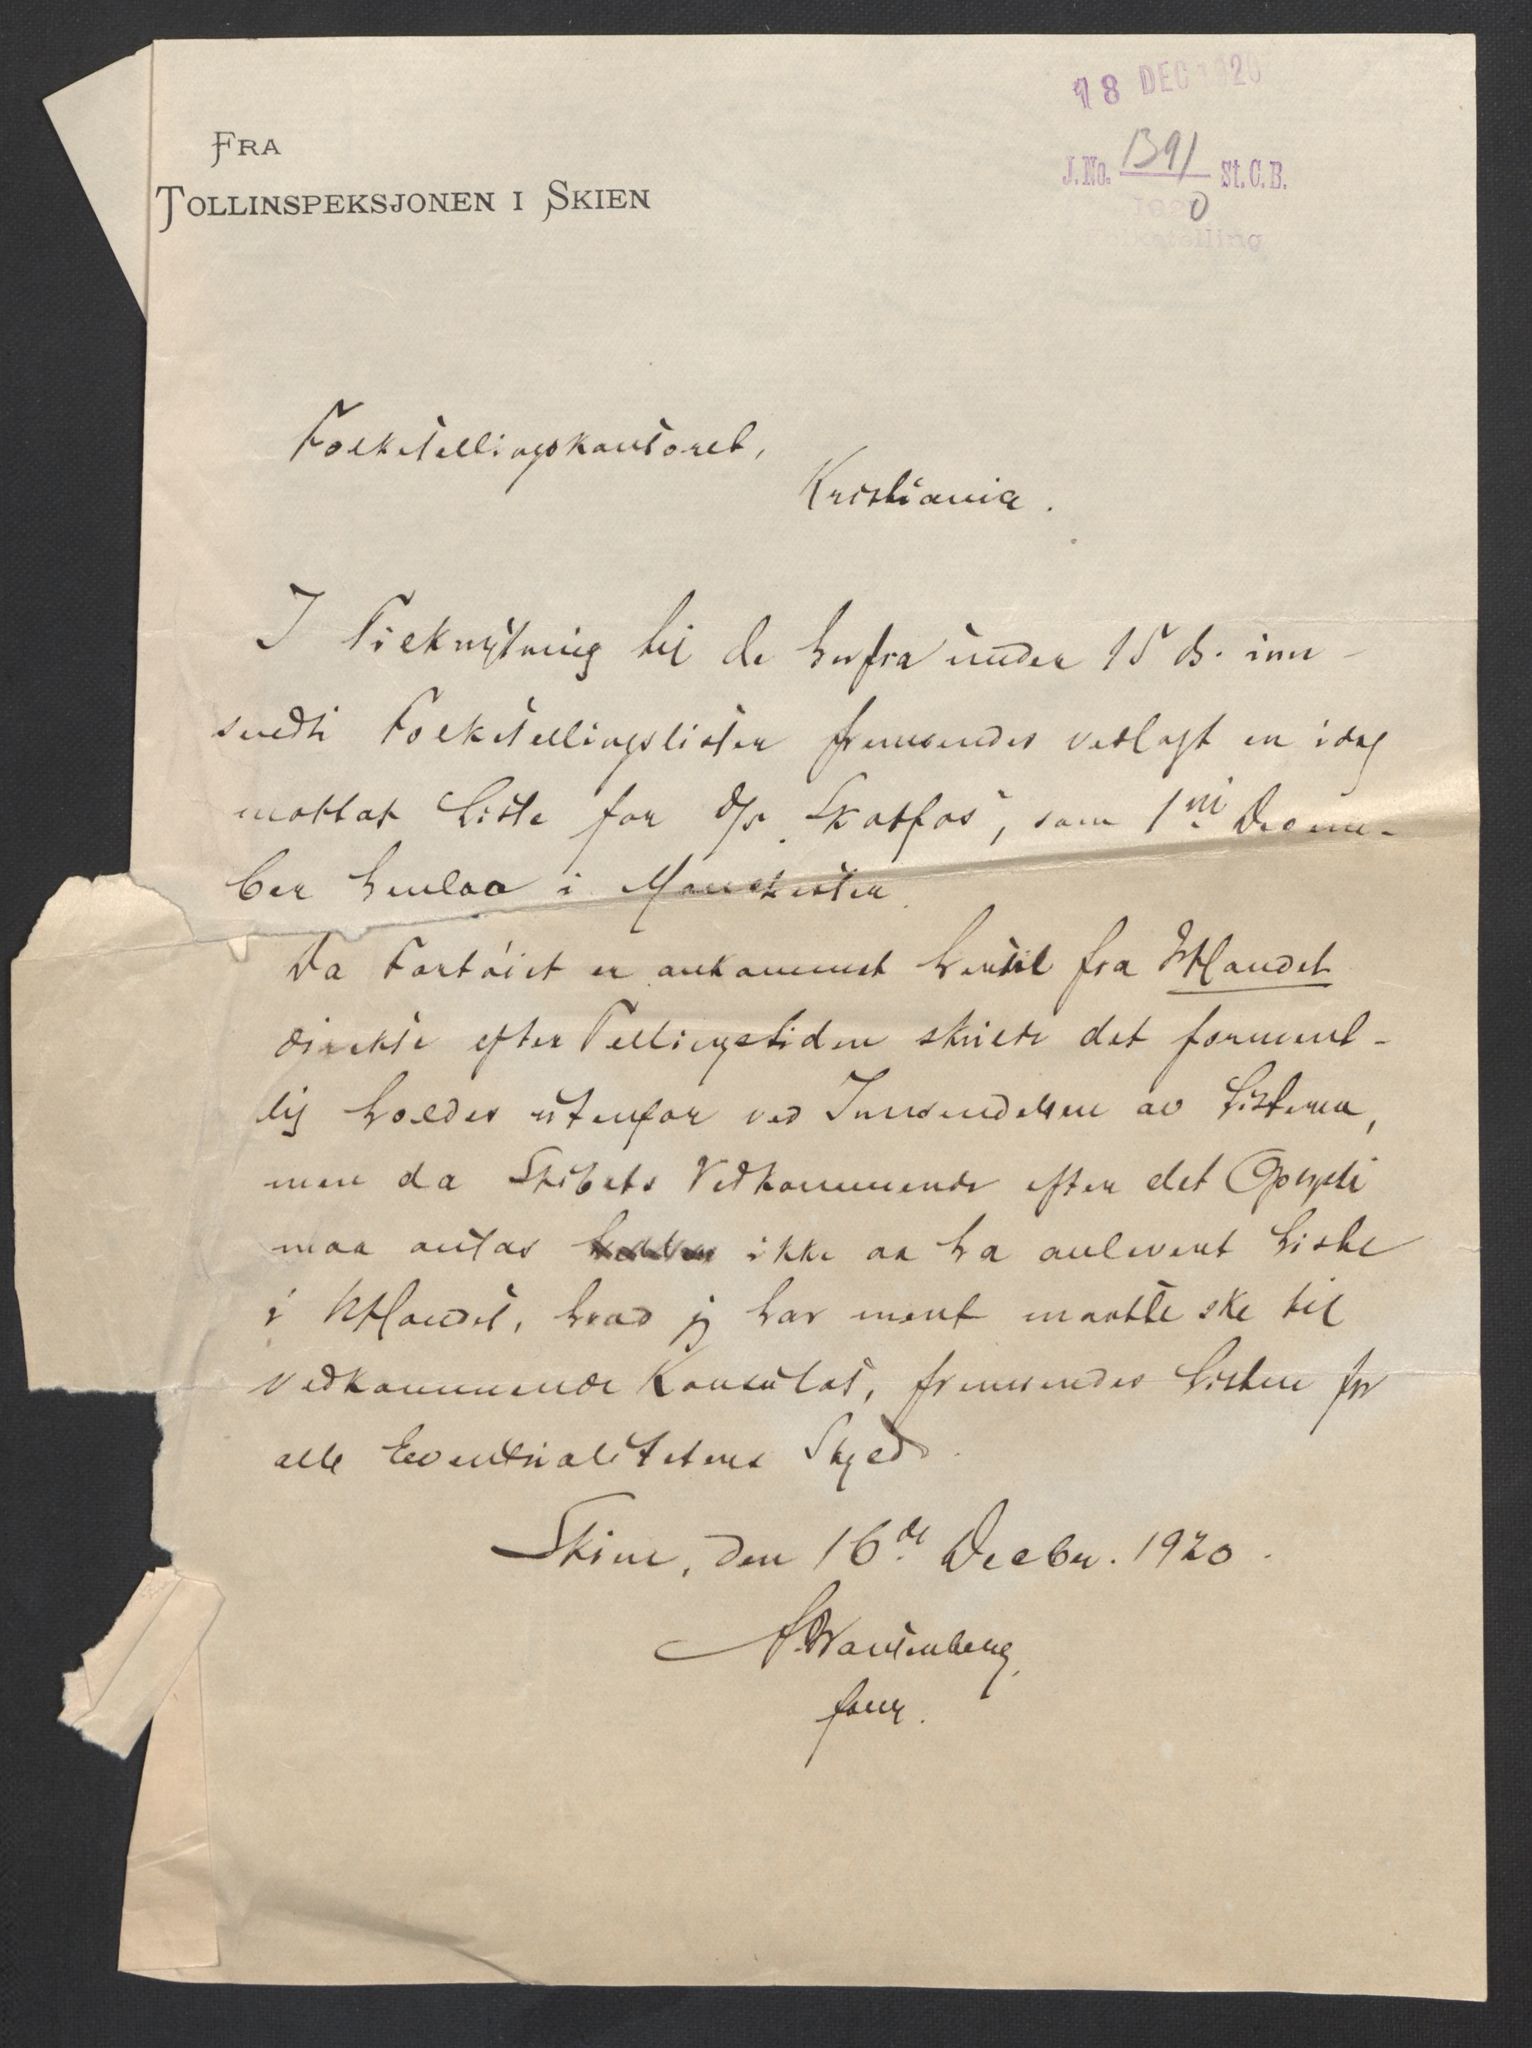 18 DEC 1920
FRA
TOLLINSPEKSJONEN I SKIEN
J.No. 1391 St.C.B.
1920
Folketelling
Folketellingskontoret,
Kristiania.
I Tilknytning til de herfra under 15 ds. inn-
sendte Folketellingslister fremsendes vedlagt en idag
mottat Liste for d/s "Skotfos", som 1ste Decem-
ber henlaa i Manchester.
Da Fartøiet er ankommet hertil fra Utlandet
direkte efter Tellingstiden skulde det forment-
lig holdes utenfor ved Innsendelsen av Listerne,
men da Skibets Vedkommende efter det Oplyste
maa antas ikke aa ha anlevert Liste
i Utlandet, hvad jeg har ment maatte ske til
vedkommende Konsulat, fremsendes Listen for
alle Eventualiteters Skyld.
Skien, den 16de Decbr. 1920.